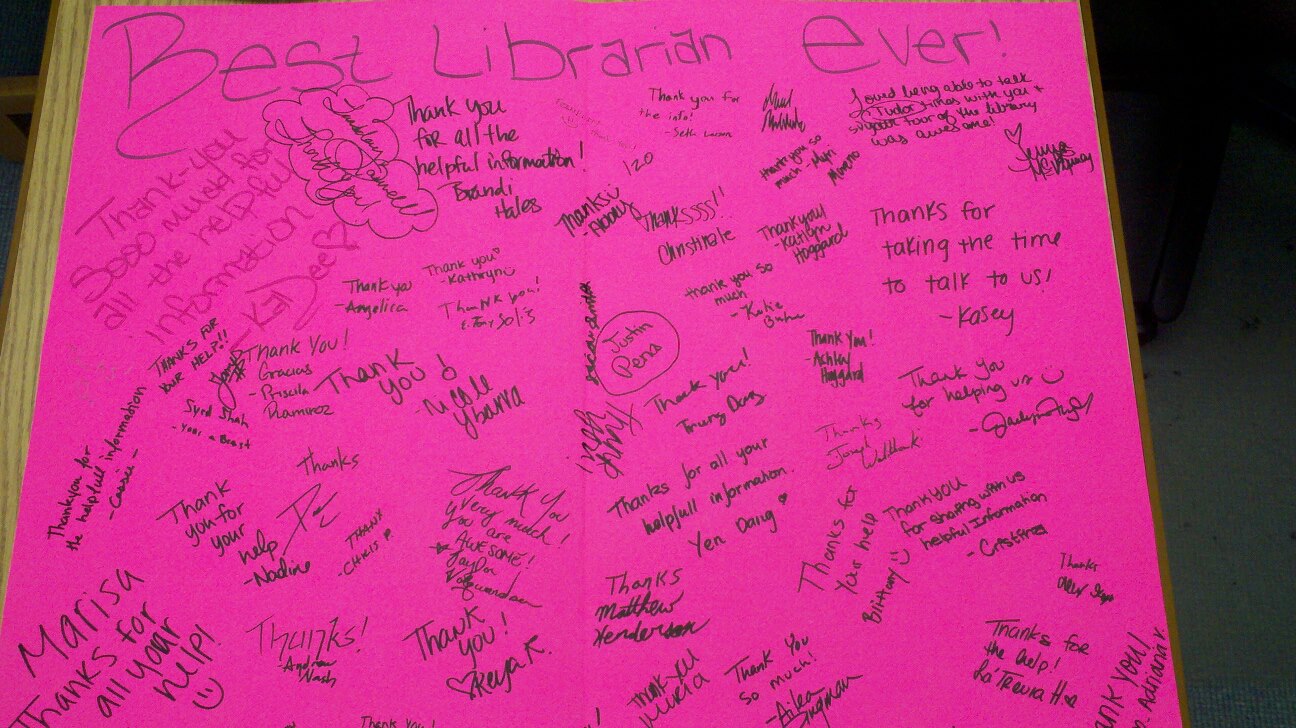 Best Librarian Ever!
Thank you
for all the
helpful information!
Brandi
Hales
Thank you for
the info!
- Seth
Loved being able to talk
Tudor times with you +
your tour of the library
was awesome!
Jenna
Thank-you
Sooo much for
all the helpful
information
thank you so
much - Myri
Moreno
120
Thanks
- Abony
Thankssss!!
Christinale
Thank you!
- Katlyn
Hoggard
Thanks for
taking the time
to talk to us!
- Kasey
Thank you
- Kathryn
Thank you
- Angelica
Thank you!
thank you so
much
- Katie
Justin
Pena
THANKS FOR
YOUR HELP!!
Thank You!
Gracias
- Priscila
Ramiroz
Thank
you!
- Nicole
Ybarra
Thank You!
- Ashley
Hoggard
Thank you!
Trung Dang
Thank you
for helping us
Syed Shah
- Your a Beast
Thankyou for
the helpfull information
- Cassie -
Thanks
Thanks
Joseph
Thanks for all your
helpfull information.
Yen Dang
Thank
you for
your
help!
- Nadine
THANX
- CHRIS
Thank You
very much!
you are
AWESOME!
Taylor
Thanks for
your help
Brittany
Thank you
for sharing with us
helpful Information
- Cristina
Thanks
Marisa
Thanks for
all your
help!
Thanks!
Andrew
Nash
Thank
you!
Reya K.
Thanks
Matthew
Henderson
Thank you
so much!
- Aileen
Thanks for
the help!
La'Trevia H
Thank you!